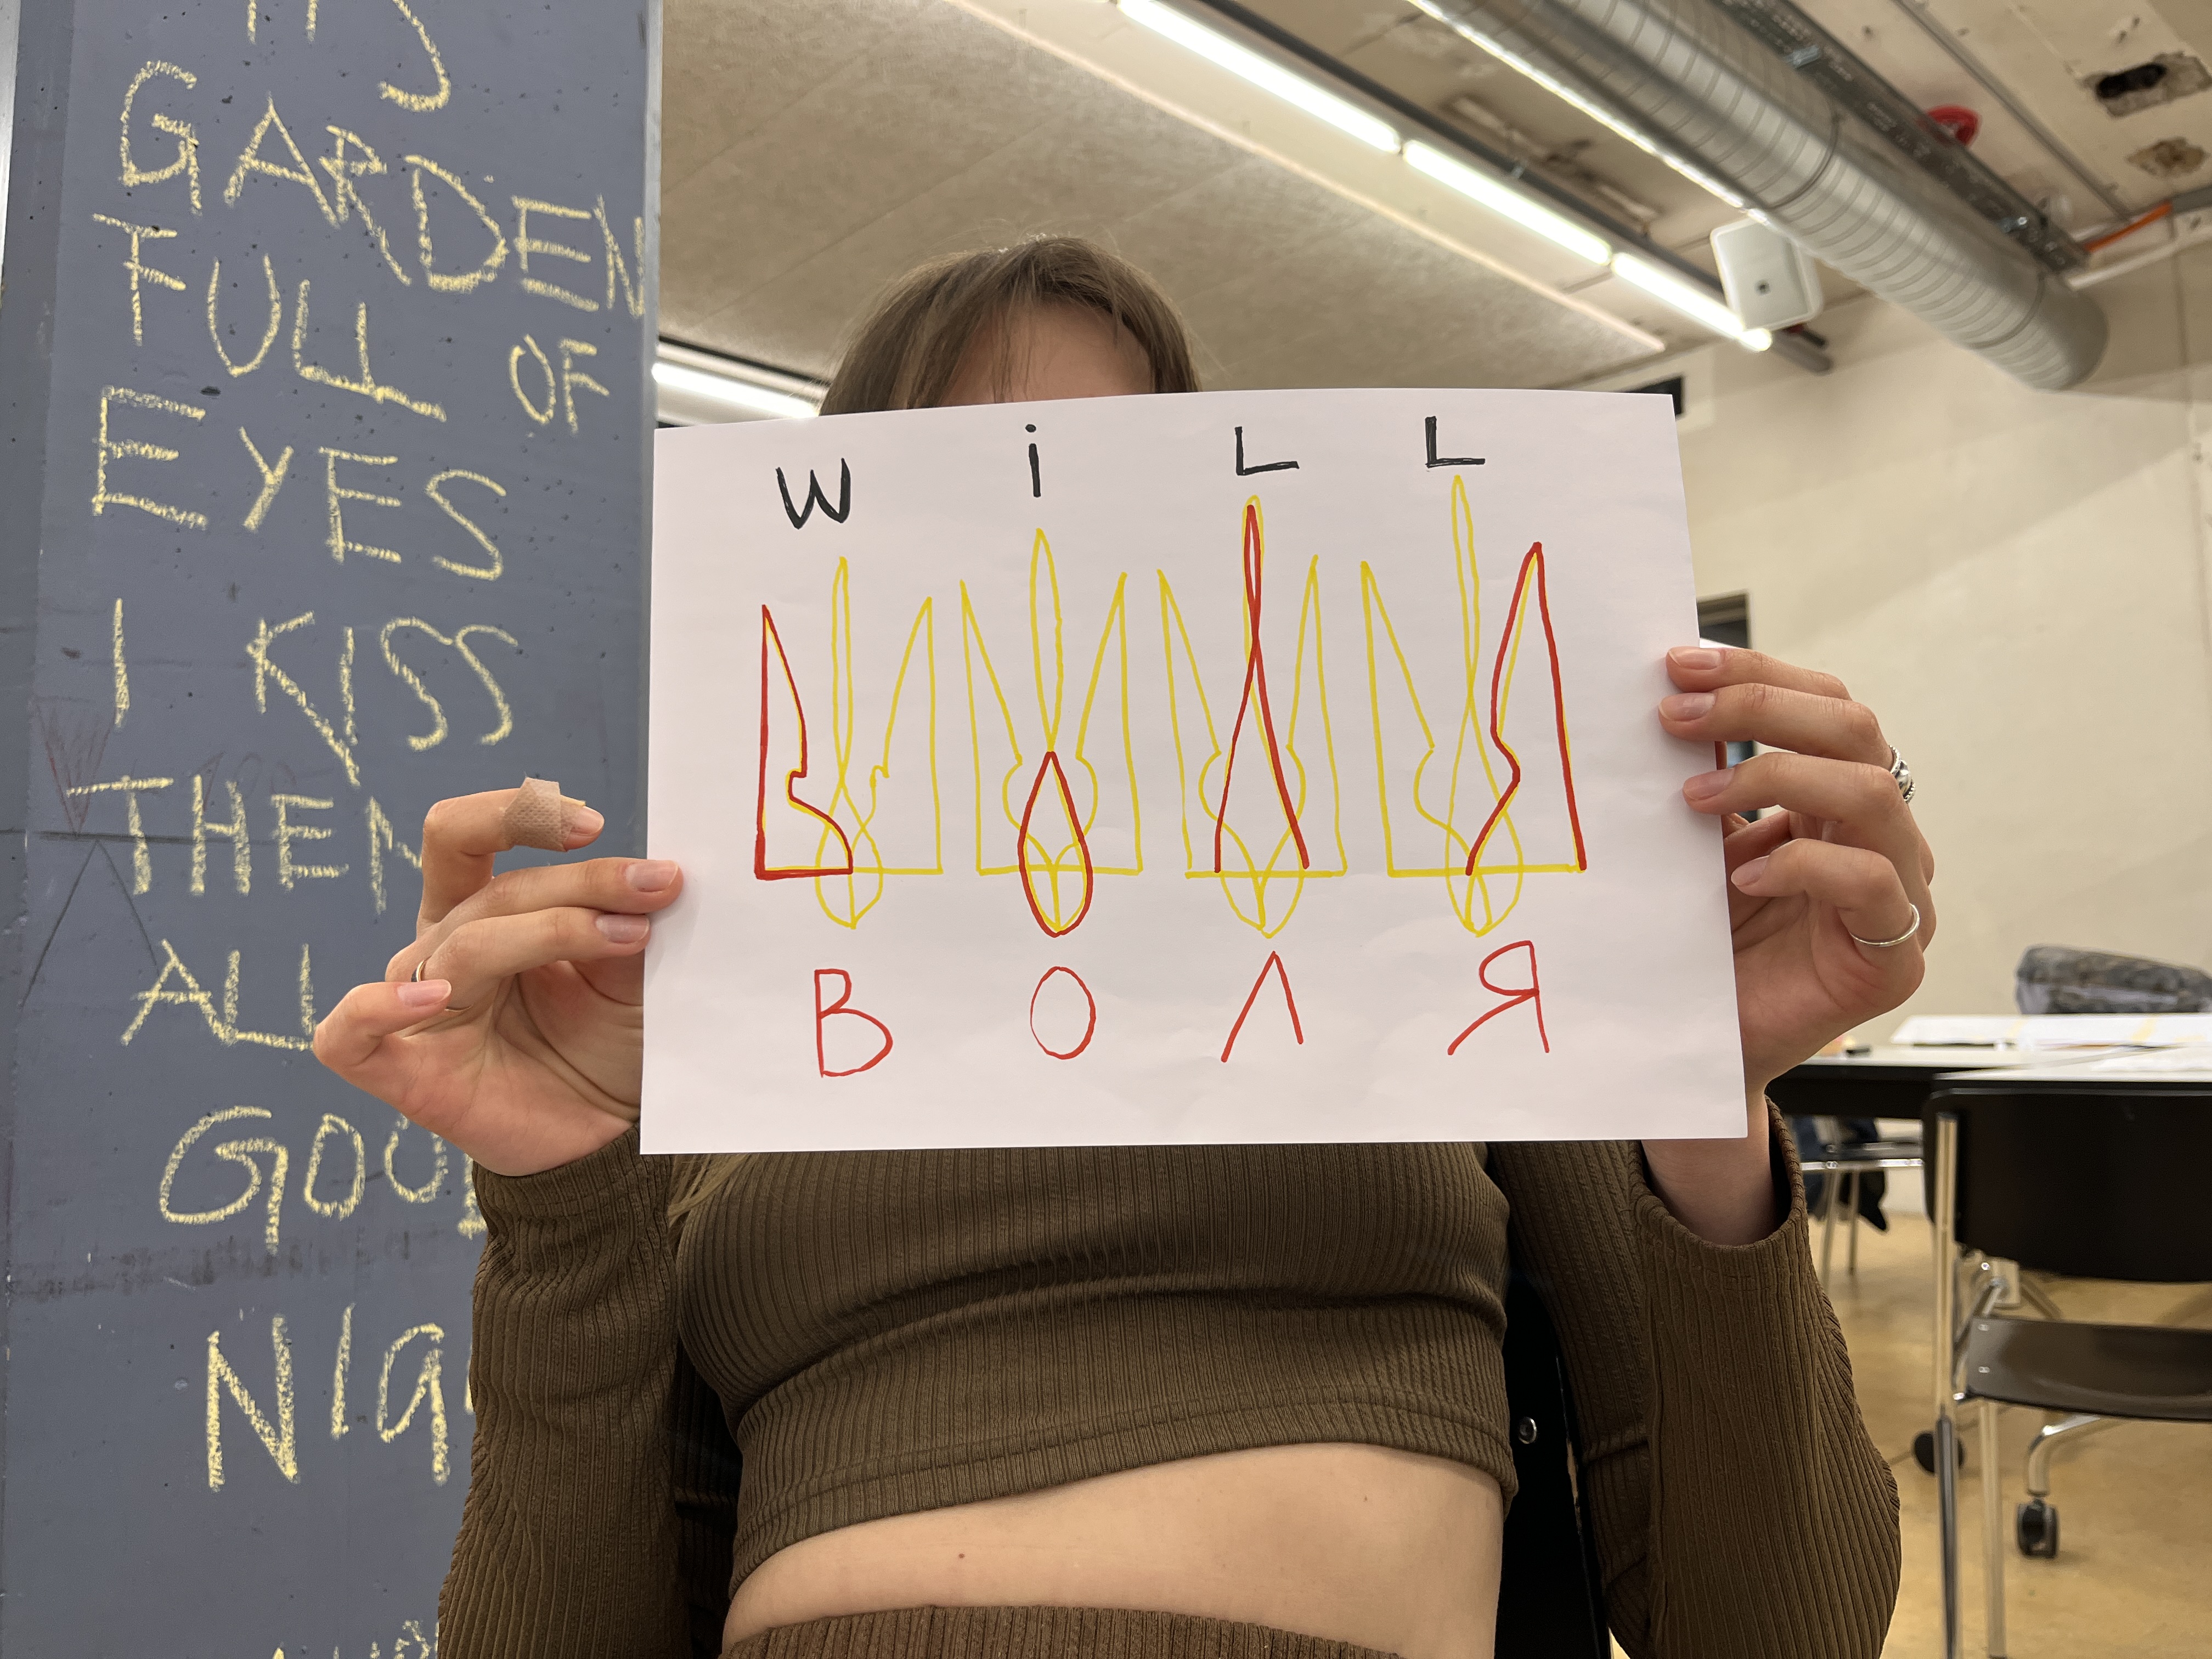 GARDEN
FULL OF
EYES
I KISS
THEM
ALL
GOOD
W i L L
В О Л Я